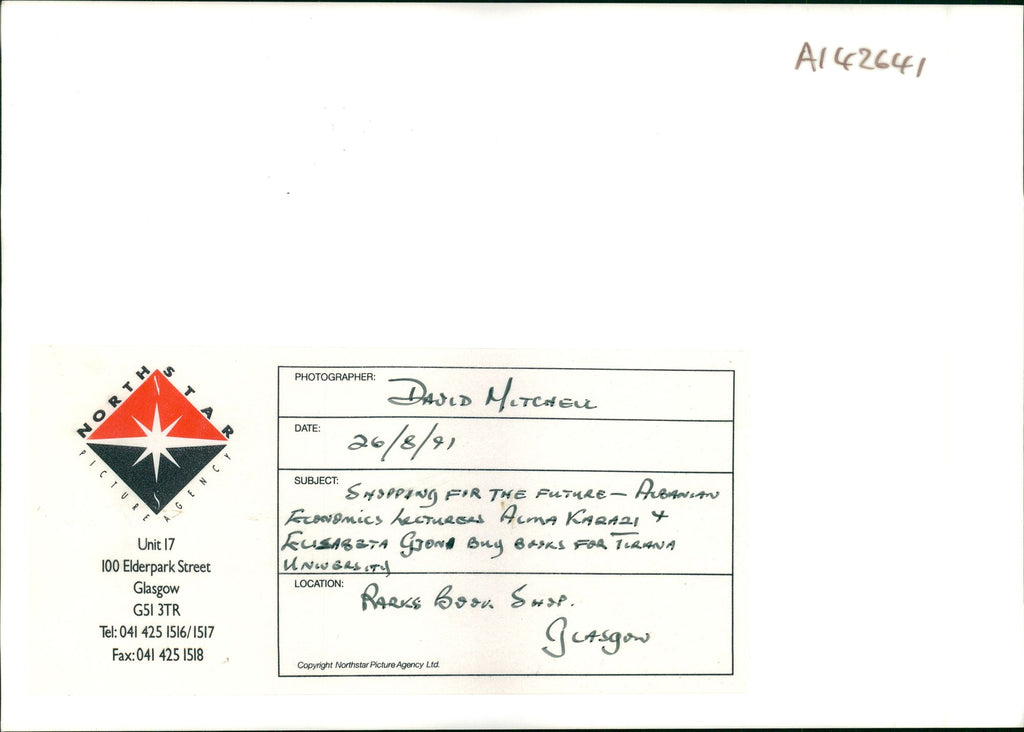 A142641
NORTHSTAR
PICTURE AGENCY
Unit 17
100 Elderpark Street
Glasgow
G51 3TR
Tel: 041 425 1516/1517
Fax: 041 425 1518
PHOTOGRAPHER: DAVID MITCHELL
DATE: 26/8/91
SUBJECT: SHOPPING FOR THE FUTURE – ALBANIAN
ECONOMICS LECTURERS ALMA KARAZI +
ELISABETA GJONI BUY BOOKS FOR TIRANA
UNIVERSITY
LOCATION: PARKS BOOK SHOP.
GLASGOW
Copyright Northstar Picture Agency Ltd.